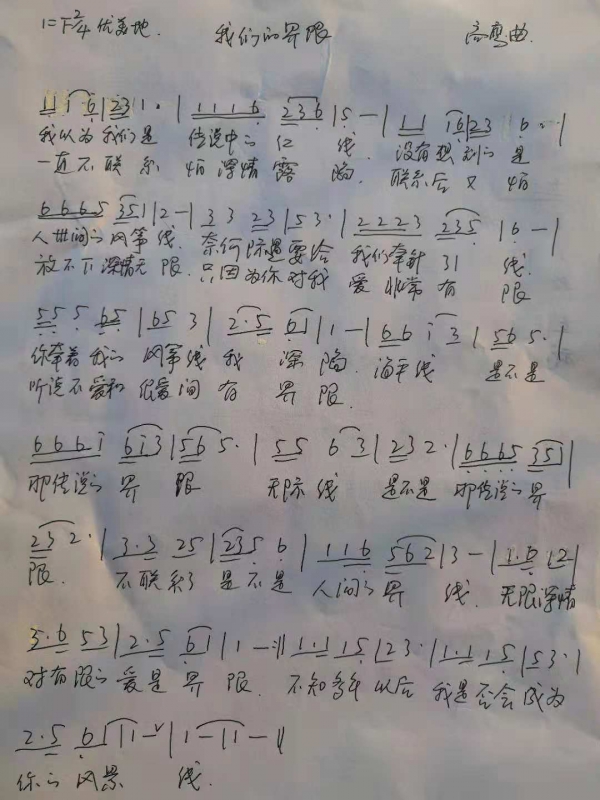 1=F 2/4 优美地. 我们的界限 高弯曲.
1 1 1 6 | 2 3 1 · | 1 1 1 6 2 3 6 | 5 — | 1 1 1 6 | 2 3 6 · |
我以为我们是 传说中的红 线. 没有想到的是
一直不联系 怕深情露 陷. 联系后又怕
6 6 6 5 3 5 1 | 2 — | 3 3 2 3 | 5 3 · | 2 2 2 3 2 3 5 | 6 — |
人世间的风筝线. 奈何际遇要给 我们牵针引 线.
放不下深情无限. 只因为你对我 爱非常有 限
5 5 5 6 5 | 6 5 3 | 2 · 5 6 1 | 1 — | 6 6 1 3 | 5 6 5 · |
你牵着我的 风筝线 我 深 陷. 海平线 是不是
听说不爱和 很爱间 有 界 限.
6 6 6 1 6 1 3 | 5 6 5 · | 5 5 6 3 | 2 3 2 · | 6 6 6 5 3 5 1 |
那传说的界 限 无际线 是不是 那传说的界
2 3 2 · | 3 · 3 2 5 | 2 3 5 6 | 1 1 6 5 6 2 | 3 — | 1 · 6 1 2 |
限. 不联系了 是不是 人间的界 线. 无限深情
3 · 6 5 3 | 2 · 5 6 1 | 1 — :|| 1 · 1 1 5 | 2 3 · | 1 · 1 1 5 | 5 3 · |
对有限的 爱是界 限. 不知多年以后 我是否会成为
2 · 5 6 1 | 1 — | 1 — | 1 — ||
你的风景 线.